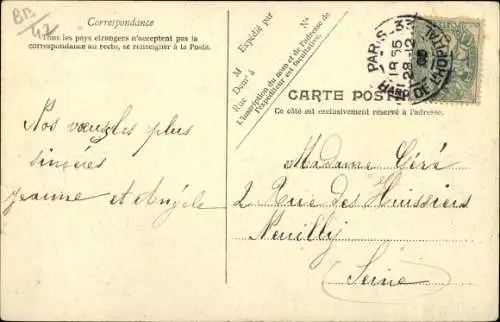 BB
42
Correspondance
Tous les pays étrangers n'acceptent pas la
correspondance au recto, se renseigner à la Poste.
Nos vœux les plus
sincères
Jeanne et Angèle
N°
Expédié par
M
Dom' à
Rue
L'inscription du nom et de l'adresse de
l'expéditeur est facultative.
PARIS
18 55
28-12
CARTE POSTALE
Ce côté est exclusivement réservé à l'adresse.
Madame Céré
2 Rue des Huissiers
Neuilly
(Seine)